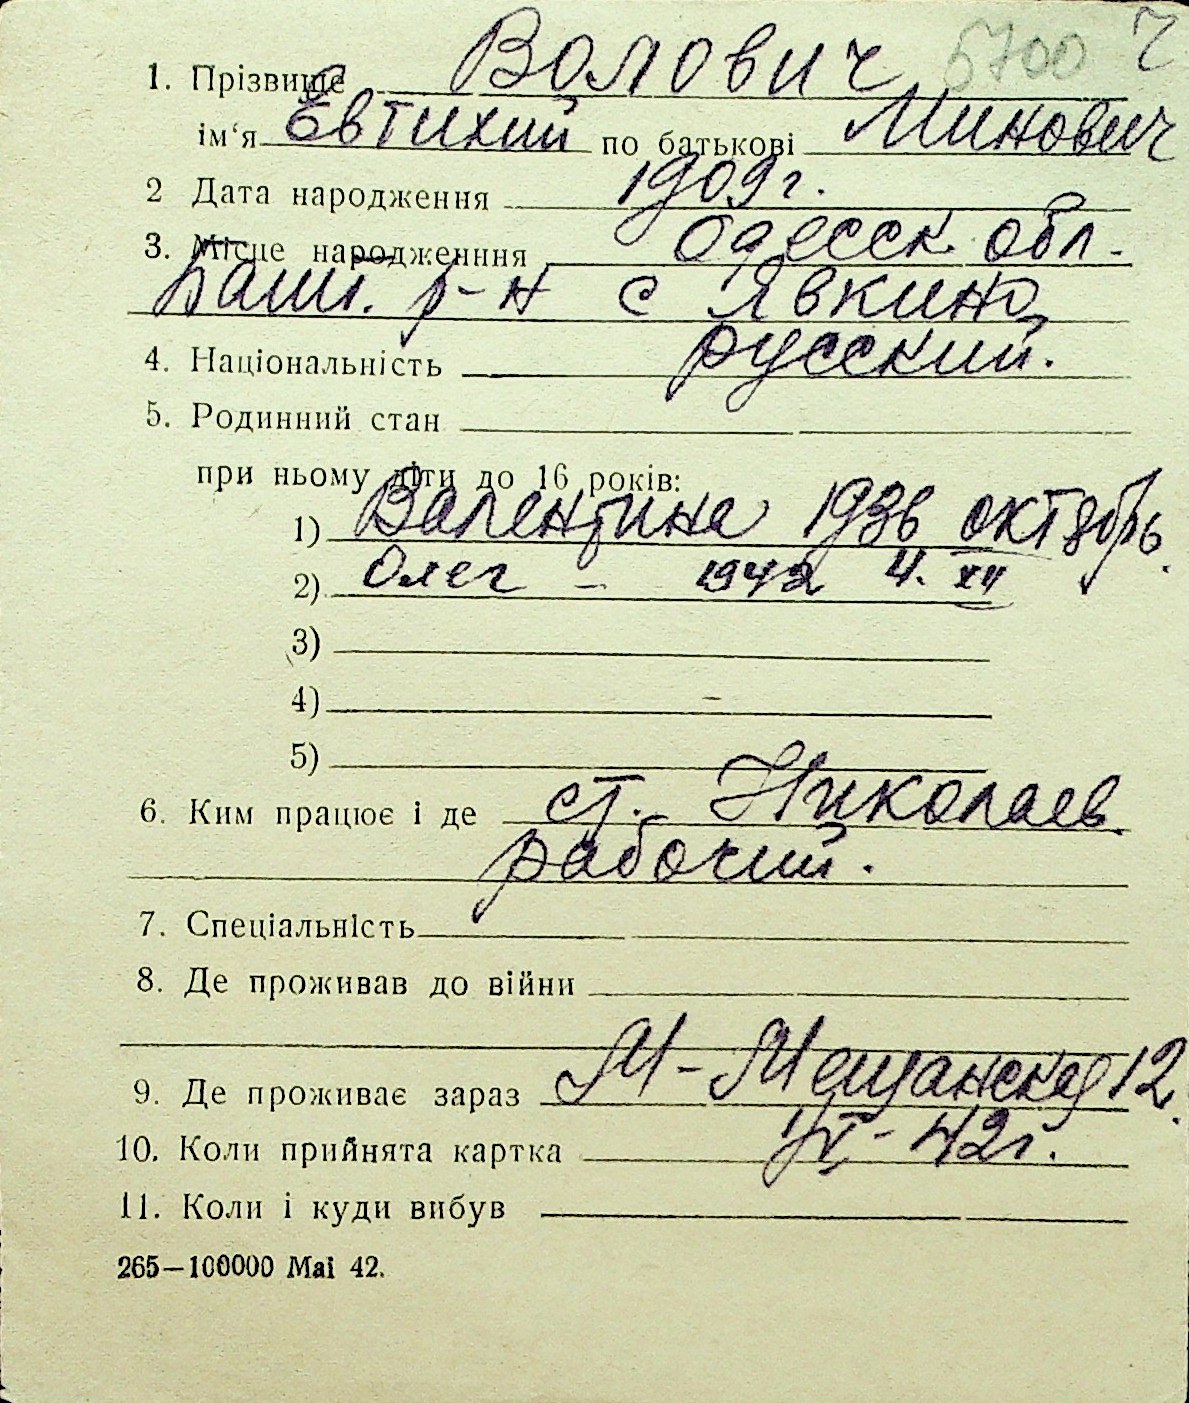 5700 ч
1. Прізвище Волович
ім‘я Евтихий по батькові Минович
2 Дата народження 1909 г.
3. Місце народженння Одесск обл.
Башт. р-н с Явкино
4. Національність русский.
5. Родинний стан
при ньому діти до 16 років:
1) Валентина 1936 октябрь.
2) Олег – 1942 4. XII
3)
4)
5)
6. Ким працює і де ст. Николаев.
рабочий.
7. Спеціальність
8. Де проживав до війни
9. Де проживає зараз М-Мещанская 12.
10. Коли прийнята картка - 42 г.
11. Коли і куди вибув
265—100000 Mai 42.